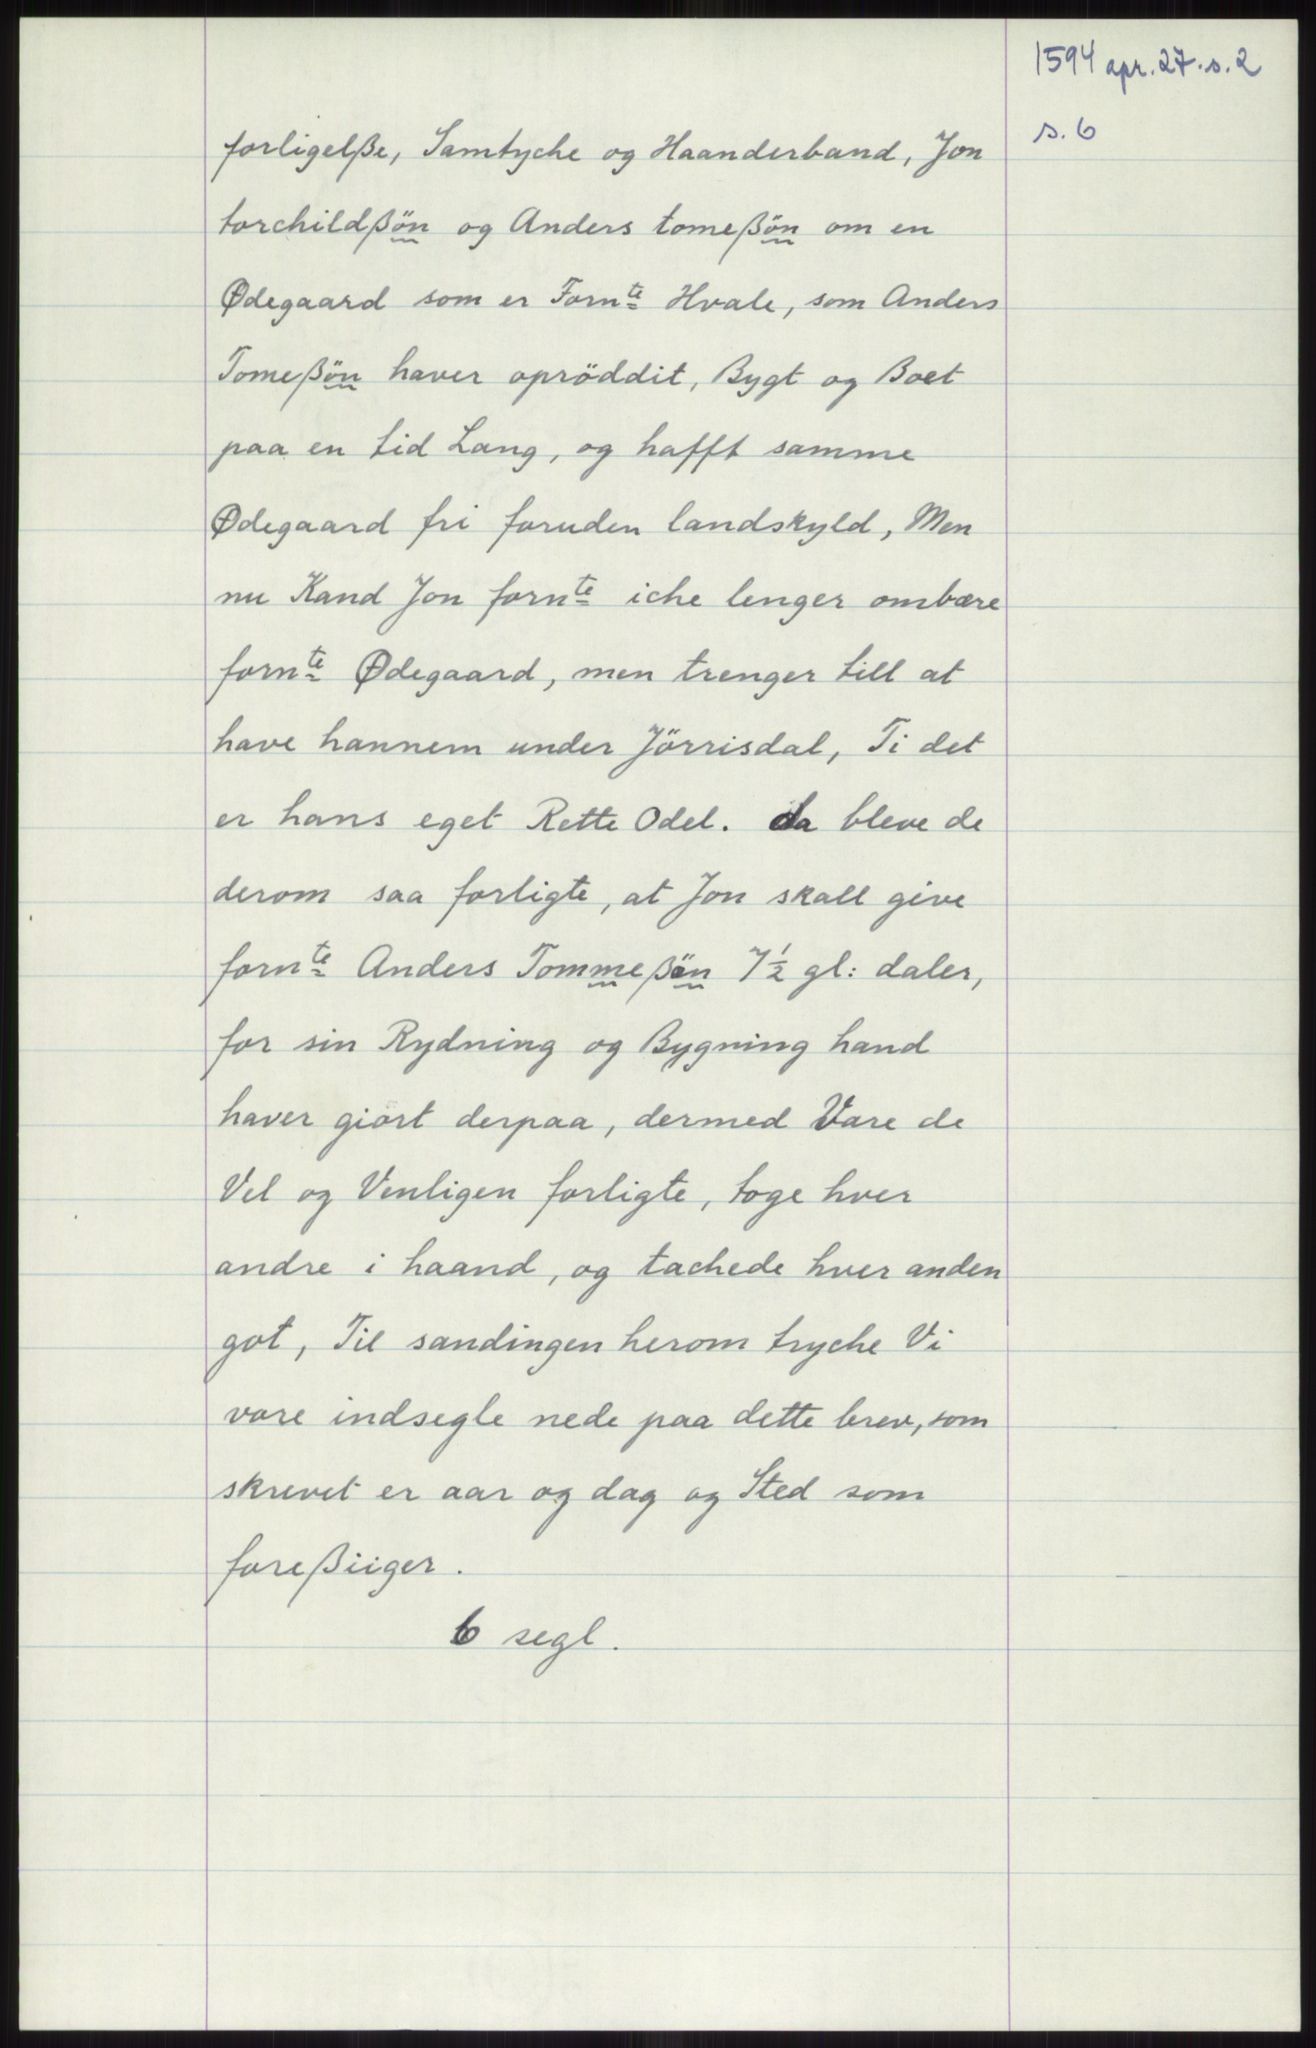 1594 apr. 27. s. 2
s. 6
forligelße, Samtyche og Haanderband, Jon
torchildßön og Anders tomeßön om en
Ødegaard som er Fornte Hvale, som Anders
Tomeßön haver opröddit, Bygt og Boet
paa en tid Lang, og hafft samme
Ødegaard fri foruden landskyld, Men
nu Kand Jon fornte iche lenger ombære
fornte Ødegaard, men trenger till at
have hannem under Jörrisdal, Ti det
er hans eget Rette Odel. da bleve de
derom saa forligte, at Jon skall give
fornte Anders Tommeßön 7½ gl: daler,
for sin Rydning og Bygning hand
haver giort derpaa, dermed Vare de
Vel og Venligen forligte, toge hver
andre i haand, og tachede hver anden
got, Til sandingen herom tryche Vi
vore indsegle nede paa dette brev, som
skrevet er aar og dag og Sted som
foreßiiger.
6 segl.